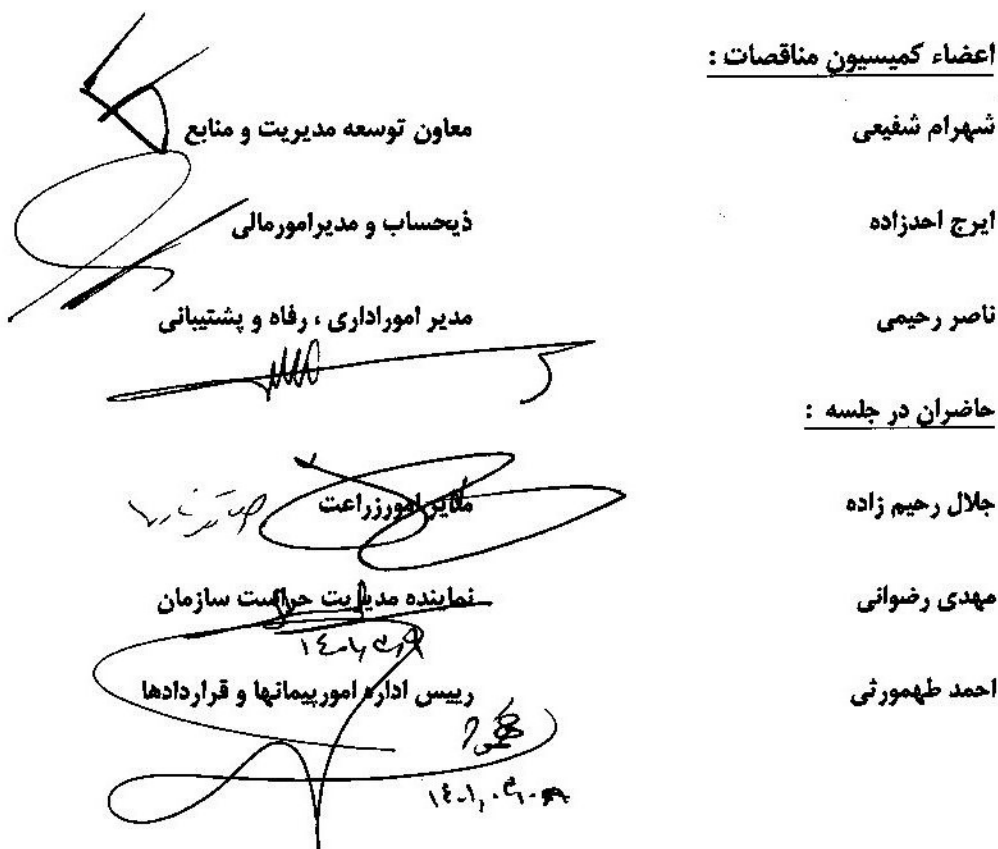 اعضاء کمیسیون مناقصات :
شهرام شفیعی معاون توسعه مدیریت و منابع
ایرج احدزاده ذیحساب و مدیرامورمالی
ناصر رحیمی مدیر اموراداری ، رفاه و پشتیبانی
حاضران در جلسه :
جلال رحیم زاده مدیر امورزراعت
مهدی رضوانی نماینده مدیریت حراست سازمان
احمد طهمورثی رییس اداره امورپیمانها و قراردادها